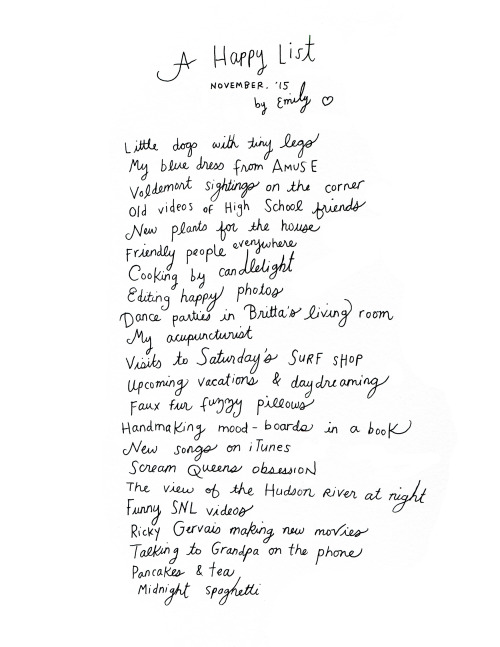 A Happy List
NOVEMBER, '15
by Emily ♡
Little dogs with tiny legs
My blue dress from AMUSE
Voldemort sightings on the corner
Old videos of High School friends
New plants for the house
Friendly people everywhere
Cooking by candlelight
Editing happy photos
Dance parties in Britta's living room
My acupuncturist
Visits to Saturday's SURF SHOP
Upcoming vacations & daydreaming
Faux fur fuzzy pillows
Handmaking mood-boards in a book
New songs on iTunes
Scream Queens obsession
The view of the Hudson River at night
Funny SNL videos
Ricky Gervais making new movies
Talking to Grandpa on the phone
Pancakes & tea
Midnight spaghetti